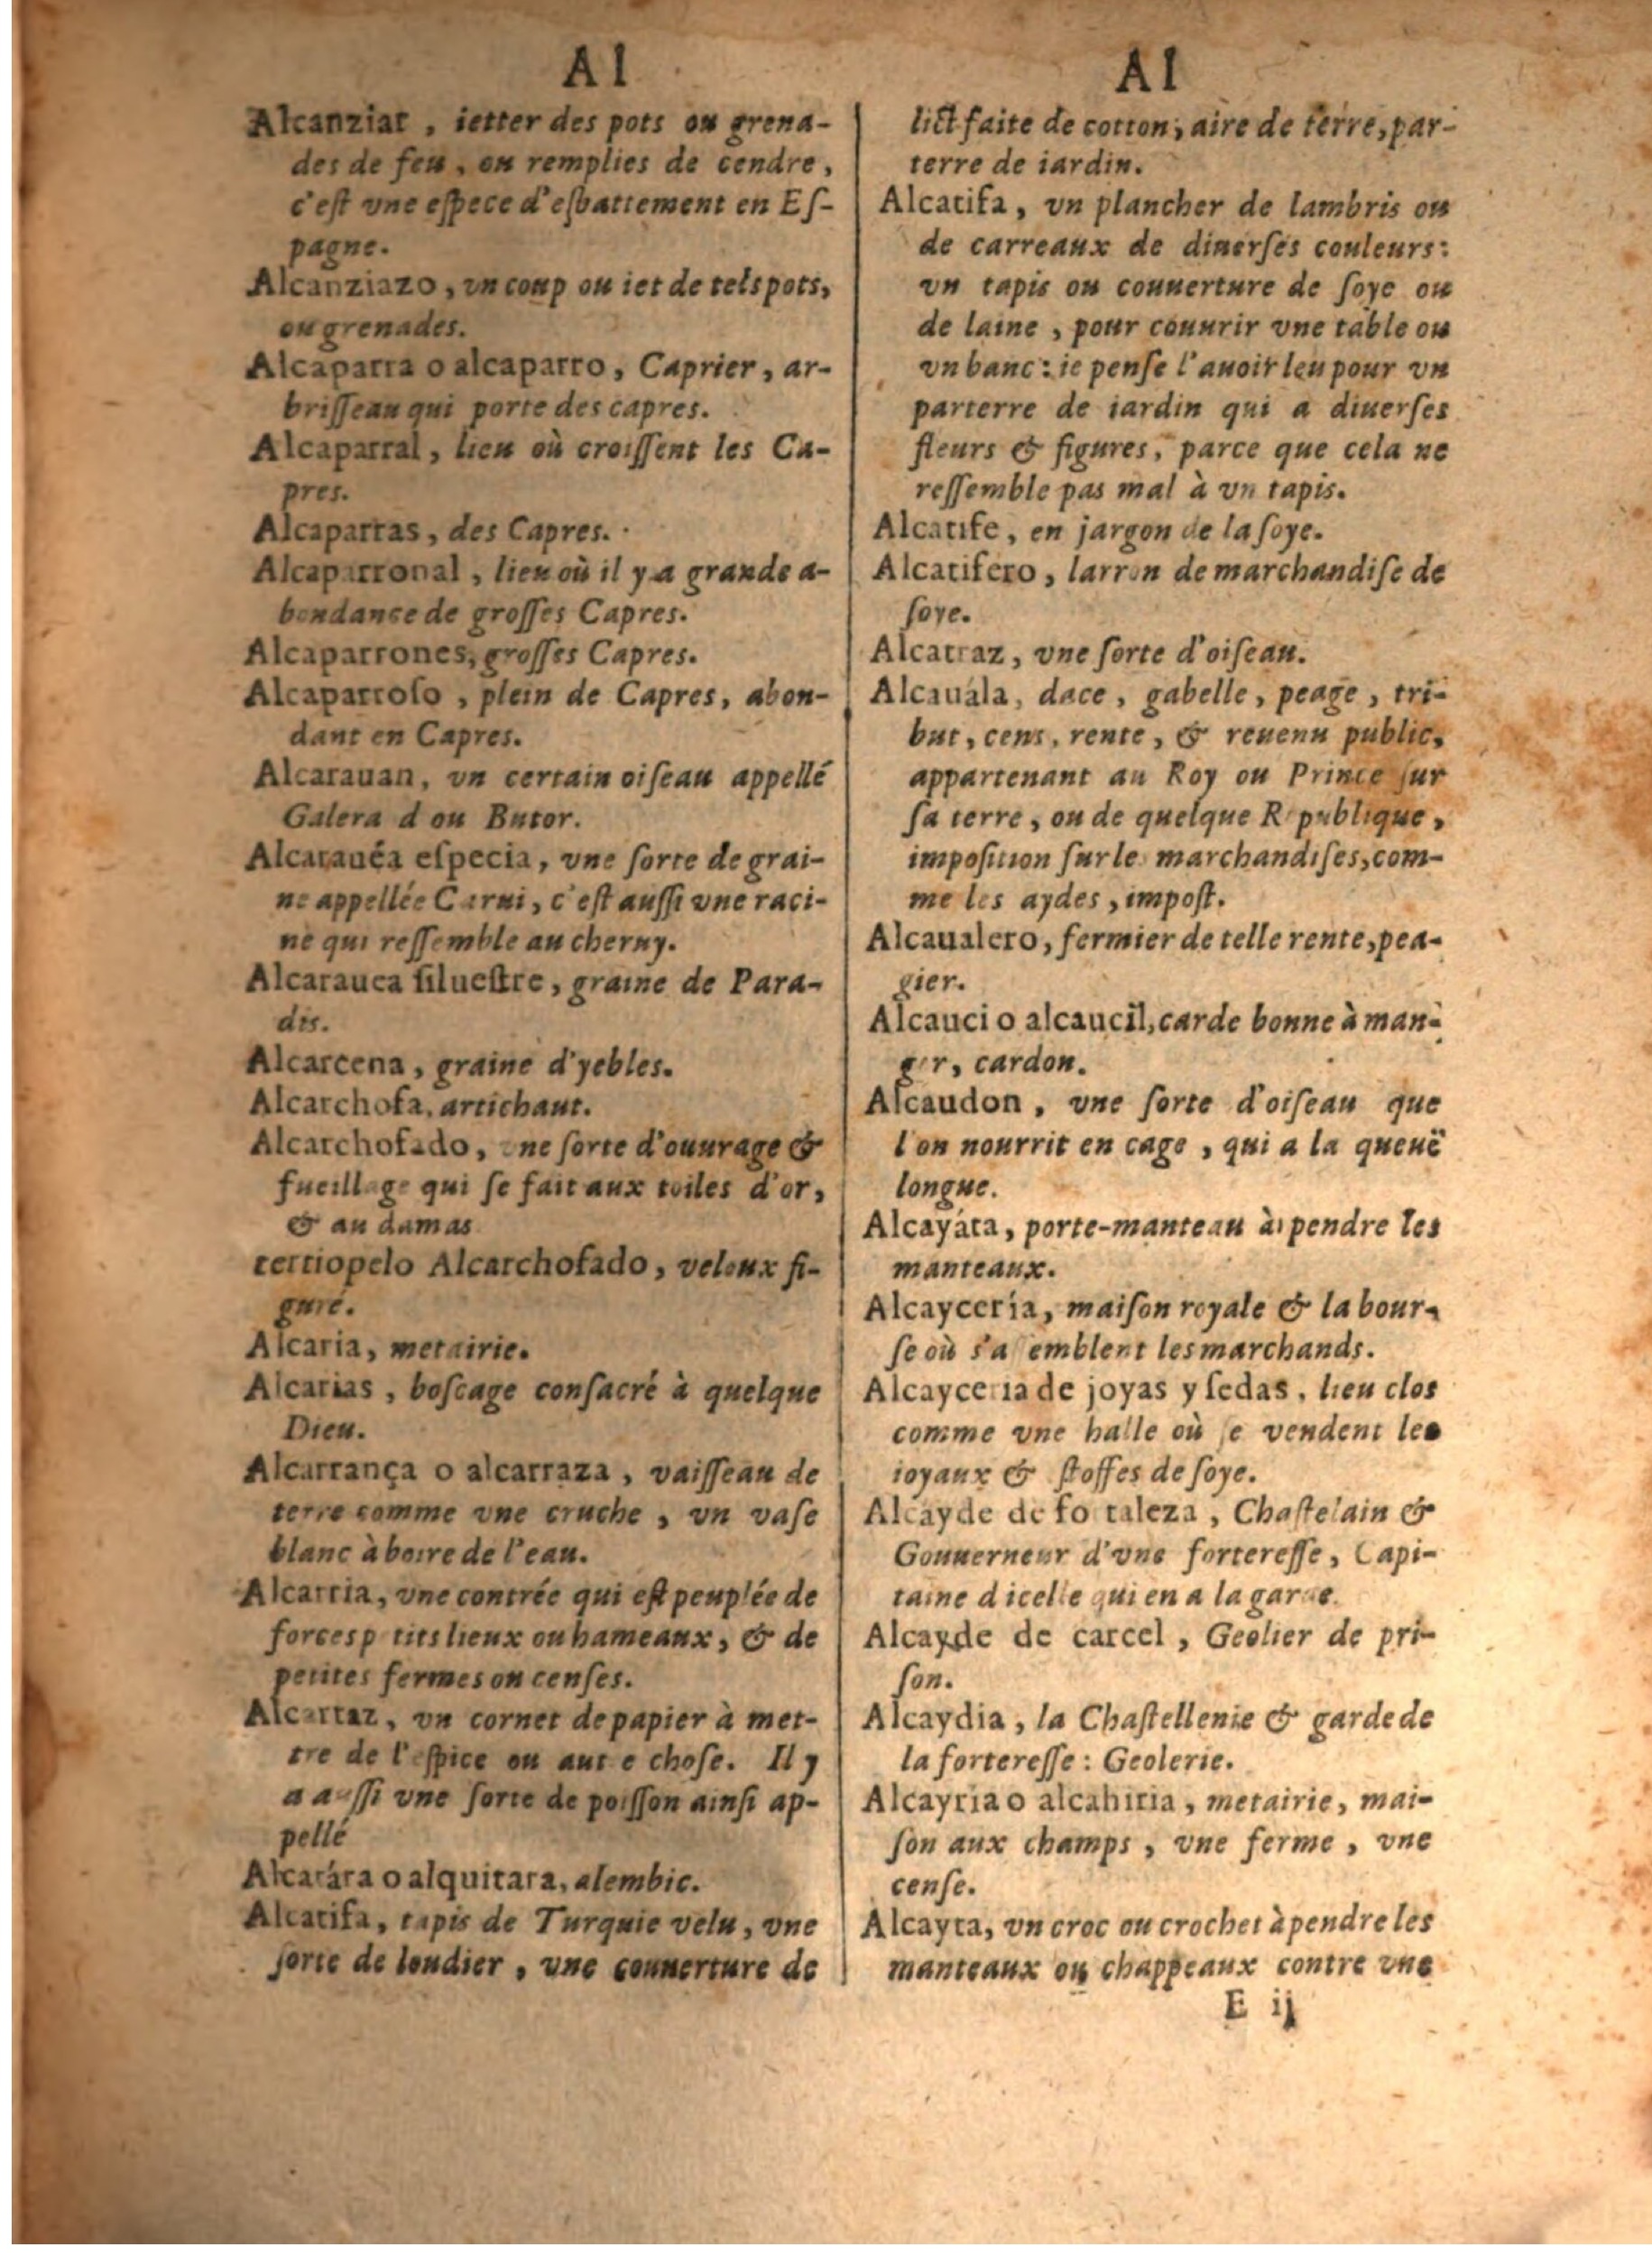 Al
Alcanziar, ietter des pots ou grena-
des de feu, ou remplies de cendre,
c'eſt vne eſpece d'eſbattement en Eſ-
pagne.
Alcanziazo, vn coup ou iet de tels pots,
ou grenades.
Alcaparra o alcaparro, Caprier, ar-
briſſeau qui porte des capres.
Alcaparral, lieu où croiſſent les Ca-
pres.
Alcaparras, des Capres.
Alcaparronal, lieu où il y a grande a-
bondance de groſſes Capres.
Alcaparrones, groſſes Capres.
Alcaparroſo, plein de Capres, abon-
dant en Capres.
Alcarauan, vn certain oiſeau appellé
Galera d ou Butor.
Alcarauéa eſpecia, vne ſorte de grai-
ne appellée Carui, c'eſt auſſi vne raci-
ne qui reſſemble au cheruy.
Alcarauea ſilueſtre, graine de Para-
dis.
Alcarcena, graine d'yebles.
Alcarchofa, artichaut.
Alcarchofado, vne ſorte d'ouurage &
fueillage qui ſe fait aux toiles d'or,
& au damas
tertiopelo Alcarchofado, veloux fi-
guré.
Alcaria, metairie.
Alcarias, boſcage conſacré à quelque
Dieu.
Alcarrança o alcarraza, vaiſſeau de
terre comme vne cruche, vn vaſe
blanc à boire de l'eau.
Alcarria, vne contrée qui eſt peuplée de
forces p tits lieux ou hameaux, & de
petites fermes ou cenſes.
Alcartaz, vn cornet de papier à met-
tre de l'eſpice ou aut e choſe. Il y
a auſſi vne ſorte de poiſſon ainſi ap-
pellé
Alcatára o alquitara, alembic.
Alcatifa, tapis de Turquie velu, vne
ſorte de loudier, vne couuerture de
Al
lict faite de cotton, aire de terre, par-
terre de iardin.
Alcatifa, vn plancher de lambris ou
de carreaux de diuerſes couleurs:
vn tapis ou couuerture de ſoye ou
de laine, pour couurir vne table ou
vn banc: ie penſe l'auoir leu pour vn
parterre de iardin qui a diuerſes
fleurs & figures, parce que cela ne
reſſemble pas mal à vn tapis.
Alcatife, en jargon de la ſoye.
Alcatifero, larron de marchandiſe de
ſoye.
Alcatraz, vne ſorte d'oiſeau.
Alcauála, dace, gabelle, peage, tri-
but, cens, rente, & reuenu public,
appartenant au Roy ou Prince ſur
ſa terre, ou de quelque R publique,
impoſition ſur le marchandiſes, com-
me les aydes, impoſt.
Alcaualero, fermier de telle rente, pea-
gier.
Alcauci o alcaucil, carde bonne à man-
ger, cardon.
Alcaudon, vne ſorte d'oiſeau que
l'on nourrit en cage, qui a la queuë
longue.
Alcayáta, porte-manteau à pendre les
manteaux.
Alcaycería, maiſon royale & la bour-
ſe où s'a ſemblent les marchands.
Alcayceria de joyas y ſedas, lieu clos
comme vne halle où ſe vendent les
ioyaux & ſtoffes de ſoye.
Alcayde de fo taleza, Chaſtelain &
Gouuerneur d'vne fortereſſe, Capi-
taine d icelle qui en a la garde.
Alcayde de carcel, Geolier de pri-
ſon.
Alcaydia, la Chaſtellenie & garde de
la fortereſſe: Geolerie.
Alcayria o alcahiria, metairie, mai-
ſon aux champs, vne ferme, vne
cenſe.
Alcayta, vn croc ou crochet à pendre les
manteaux ou chappeaux contre vne
E ij